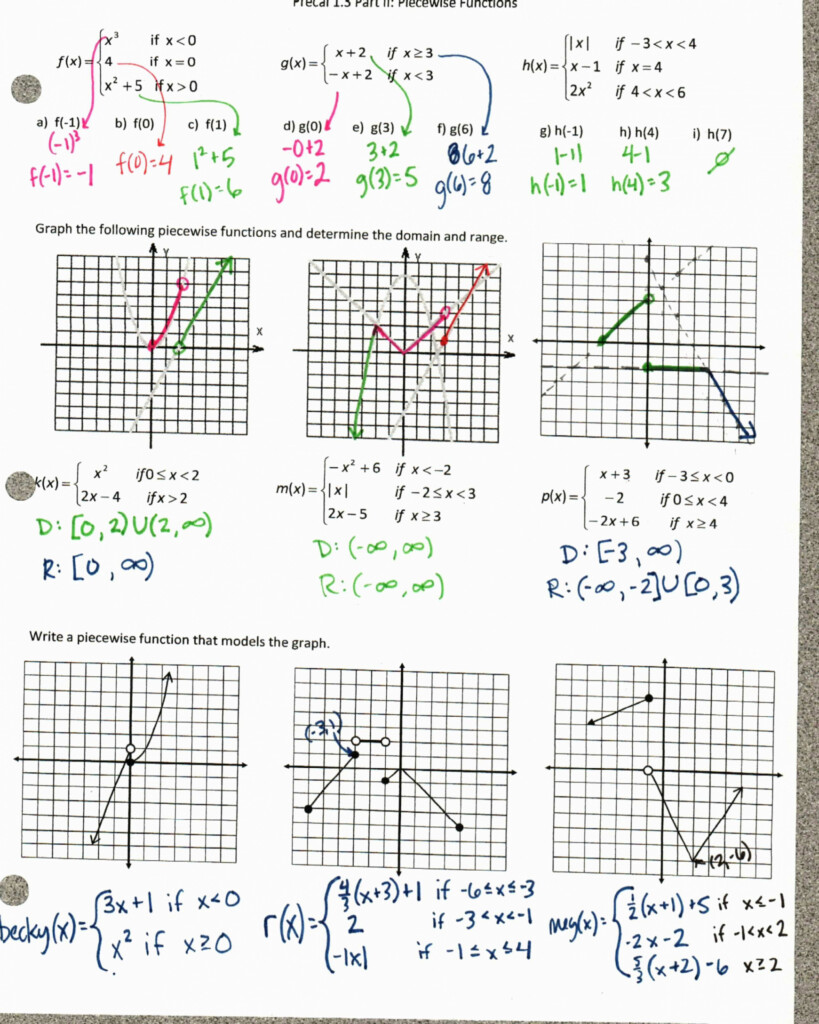 Precal 1.3 Part II: Piecewise Functions
f(x) = { x³ if x < 0
4 if x = 0
x² + 5 if x > 0
g(x) = { x + 2 if x ≥ 3
−x + 2 if x < 3
h(x) = { |x| if −3 < x < 4
x − 1 if x = 4
2x² if 4 < x < 6
a) f(-1) b) f(0) c) f(1) d) g(0) e) g(3) f) g(6) g) h(-1) h) h(4) i) h(7)
(-1)³ 1²+5 -0+2 3+2 6+2 |-1| 4-1 ∅
f(-1)=-1 f(0)=4 f(1)=6 g(0)=2 g(3)=5 g(6)=8 h(-1)=1 h(4)=3
Graph the following piecewise functions and determine the domain and range.
Y
X
Y
X
k(x) = { x² if 0 ≤ x < 2
2x − 4 if x > 2
D: [0, 2) U (2, ∞)
R: [0, ∞)
m(x) = { −x² + 6 if x < −2
|x| if −2 ≤ x < 3
2x − 5 if x ≥ 3
D: (-∞, ∞)
R: (-∞, ∞)
p(x) = { x + 3 if −3 ≤ x < 0
−2 if 0 ≤ x < 4
−2x + 6 if x ≥ 4
D: [-3, ∞)
R: (-∞, -2] U [0, 3)
Write a piecewise function that models the graph.
(-3,1)
(2,-6)
becky(x) = { 3x+1 if x<0
x² if x≥0
r(x) = { 4/3(x+3)+1 if -6≤x≤-3
2 if -3<x<-1
-|x| if -1≤x≤4
meg(x) = { 1/2(x+1)+5 if x≤-1
-2x-2 if -1<x<2
5/3(x+2)-6 x≥2